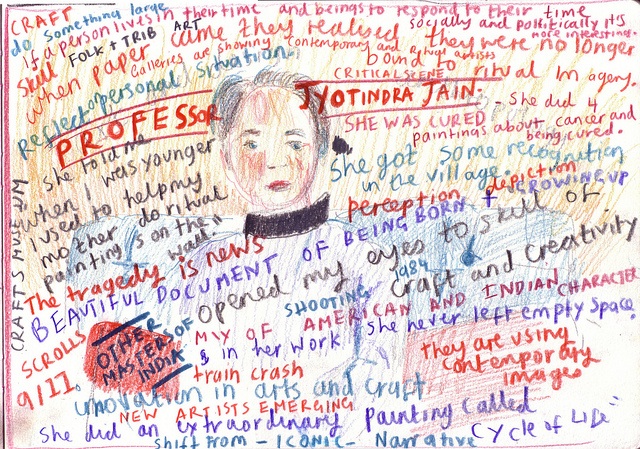 CRAFT
do something large
if a person lives in their time and beings to respond to their time
socially and politically its
more interesting.
Skill FOLK + TRIB ART
when paper came they realised they were no longer
Galleries are showing contemporary and ritual artists
bound to ritual imagery.
Reflect personal situation.
CRITICAL SCENE
PROFESSOR JYOTINDRA JAIN.
SHE WAS CURED - She did 4
paintings about cancer and
being cured.
She told me
when I was younger
I used to help my
mother do ritual
paintings on the
wall"
She got some recognition
in the village.
perception depiction
CRAFTS MUSEUM
The tragedy is news
BEAUTIFUL DOCUMENT OF BEING BORN + GROWING UP
opened my eyes to skill of
1984
craft and creativity
SHOOTING
SCROLLS
9/11.
OTHER
MASTERS OF
INDIA
MIX OF AMERICAN AND INDIAN CHARACTER
& in her work She never left empty space.
train crash
they are using
contemporary
images
innovation in arts and craft
NEW ARTISTS EMERGING
She did an extraordinary painting called
"Cycle of Life"
Shift from - ICONIC - Narrative